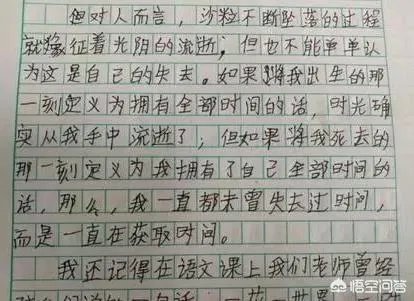 但对人而言，沙粒不断坠落的过程
就像征着光阴的流逝；但也不能单单认
为这是自己的失去。如果将我出生的那
一刻定义为拥有全部时间的话，时光确
实从我手中流逝了；但如果将我死去的
那一刻定义为我拥有了自己全部时间的
话，那么，我一直都未曾失去过时间，
而是一直在获取时间。
我还记得在语文课上我们老师曾经
悟空问答